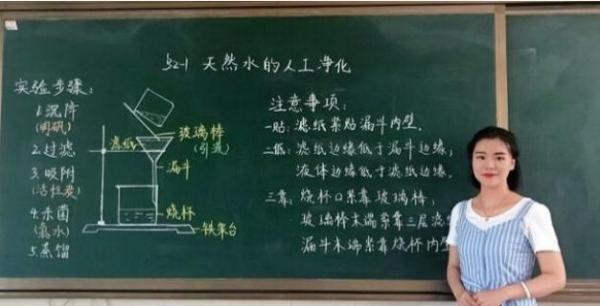 §2-1 天然水的人工净化
实验步骤：
1.沉降
(明矾)
2.过滤
3.吸附
(活性炭)
4.杀菌
(氯水)
5.蒸馏
滤纸
玻璃棒
(引流)
漏斗
烧杯
铁架台
注意事项：
一贴：滤纸紧贴漏斗内壁。
二低：滤纸边缘低于漏斗边缘；
液体边缘低于滤纸边缘。
三靠：烧杯口紧靠玻璃棒；
玻璃棒末端紧靠三层滤
漏斗末端紧靠烧杯内壁